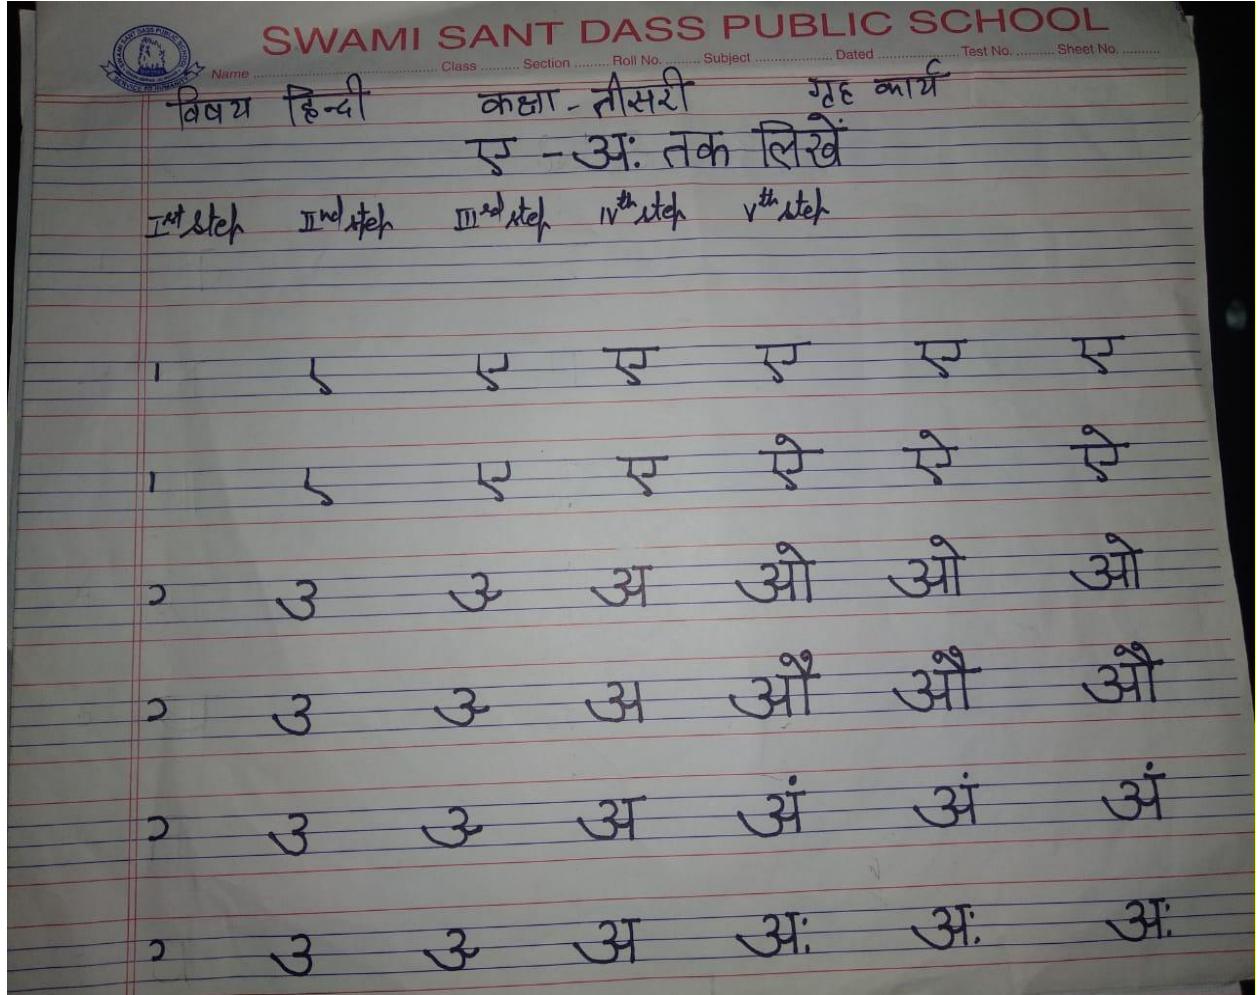 SWAMI SANT DASS PUBLIC SCHOOL
Name .......... Class .......... Section .......... Roll No. .......... Subject .......... Dated .......... Test No. .......... Sheet No. ..........
विषय हिन्दी कक्षा - तीसरी गृह कार्य
ए - अः तक लिखें
Ist step IInd step IIIrd step IVth step Vth step
ए ए ए ए ए
ए ए ऐ ऐ ऐ
उ अ ओ ओ ओ
उ अ औ औ औ
उ अ अं अं अं
उ अ अः अः अः